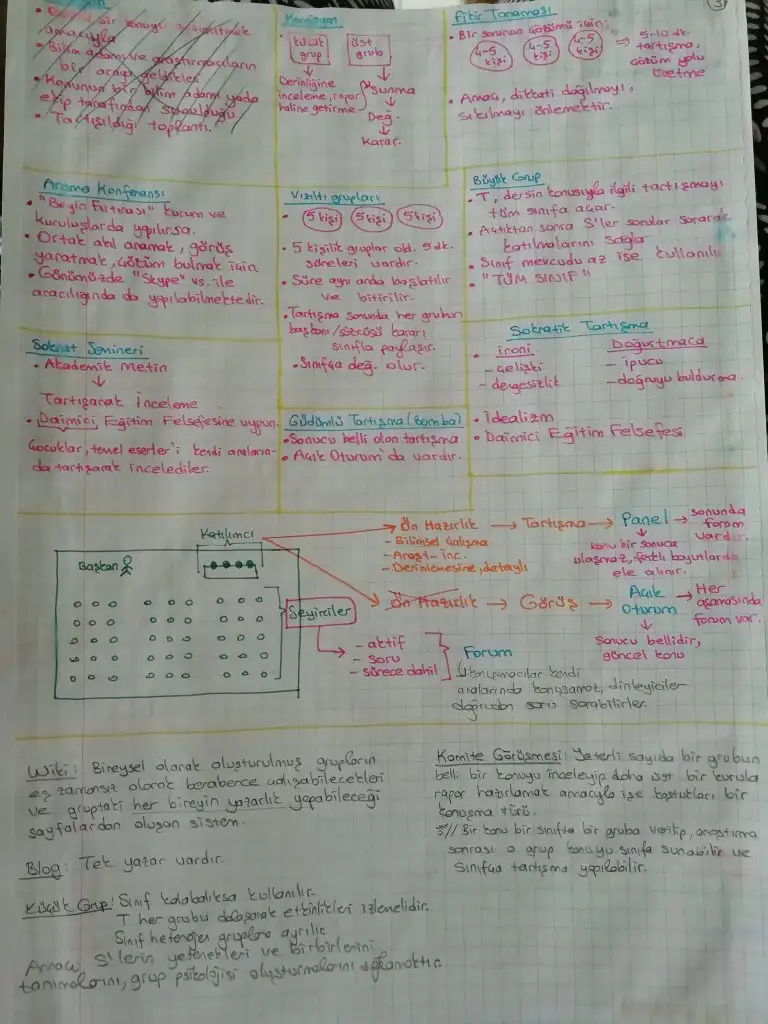 3
bir konuyu aydınlatmak
amacıyla
• Bilim adamı ve araştırmacıların
bir araya geldikleri
• Konunun bir bilim adamı yada
ekip tarafından sunulduğu
• Tartışıldığı toplantı.
Komisyon
küçük grup
üst grub
Derinliğine
inceleme, rapor
haline getirme
Sunma
Değ.
Karar.
Fikir Taraması
• Bir sorunun çözümü için;
4-5 kişi
4-5 kişi
4-5 kişi
⇒ 5-10 dk.
tartışma,
çözüm yolu
üretme
• Amaç, dikkati dağılmayı,
sıkılmayı önlemektir.
Arama Konferansı
• "Beyin Fırtınası" kurum ve
kuruluşlarda yapılırsa.
• Ortak akıl aramak, görüş
yaratmak, çözüm bulmak için.
• Günümüzde "Skype" vs. ile
aracılığında da yapılabilmektedir.
Vızıltı grupları
• 5 kişi 5 kişi 5 kişi
• 5 kişilik gruplar old. 5 dk.
süreleri vardır.
• Süre aynı anda başlatılır
ve bitirilir.
• Tartışma sonunda her grubun
başkanı/sözcüsü kararı
sınıfla paylaşır.
• Sınıfça değ. olur.
Büyük Grup
• T, dersin konusuyla ilgili tartışmayı
tüm sınıfa açar.
• Açtıktan sonra S'ler sorular sorarak
katılmalarını sağlar
• Sınıf mevcudu az ise kullanılı
• "TÜM SINIF"
Sokrat Semineri
• Akademik Metin
↓
Tartışarak İnceleme
• Daimici, Eğitim Felsefesine uygun.
Çocuklar, temel eserler'i kendi araların-
da tartışarak incelediler.
Güdümlü Tartışma (Bomba)
• Sonucu belli olan tartışma
• Açık Oturum'da vardır.
Sokratik Tartışma
• ironi
– çelişki
– dengesizlik
Doğurtmaca
– ipucu
– doğruyu buldurma.
• İdealizm
• Daimici Eğitim Felsefesi
Katılımcı
Başkan
Seyirciler
– aktif
– soru
– sürece dahil
Ön Hazırlık → Tartışma → Panel → sonunda
forum
vardır.
– Bilimsel Çalışma
– Araşt – inc.
– Derinlemesine, detaylı
konu bir sonuca
ulaşmaz, farklı boyutlarda
ele alınır.
Ön Hazırlık → Görüş → Açık
Oturum
→ Her
aşamasında
forum var.
Sonucu bellidir,
güncel konu
Forum
↳ Konuşmacılar kendi
aralarında konuşamaz, dinleyiciler
doğrudan soru sorabilirler.
Wiki: Bireysel olarak oluşturulmuş grupların
eş zamansız olarak beraberce çalışabilecekleri
ve gruptaki her bireyin yazarlık yapabileceği
sayfalardan oluşan sistem.
Blog: Tek yazar vardır.
Küçük Grup: Sınıf kalabalıksa kullanılır.
T her grubu dolaşarak etkinlikleri izlemelidir.
Sınıf heterojen gruplara ayrılır.
Amacı S'lerin yetenekleri ve birbirlerini
tanımalarını, grup psikolojisi oluşturmalarını sağlamaktır.
Komite Görüşmesi: Yeterli sayıda bir grubun
belli bir konuyu inceleyip daha üst bir kurula
rapor hazırlamak amacıyla işe koştukları bir
konuşma türü.
// Bir konu bir sınıfta bir gruba verilip, araştırma
sonrası o grup konuyu sınıfa sunabilir ve
sınıfça tartışma yapılabilir.